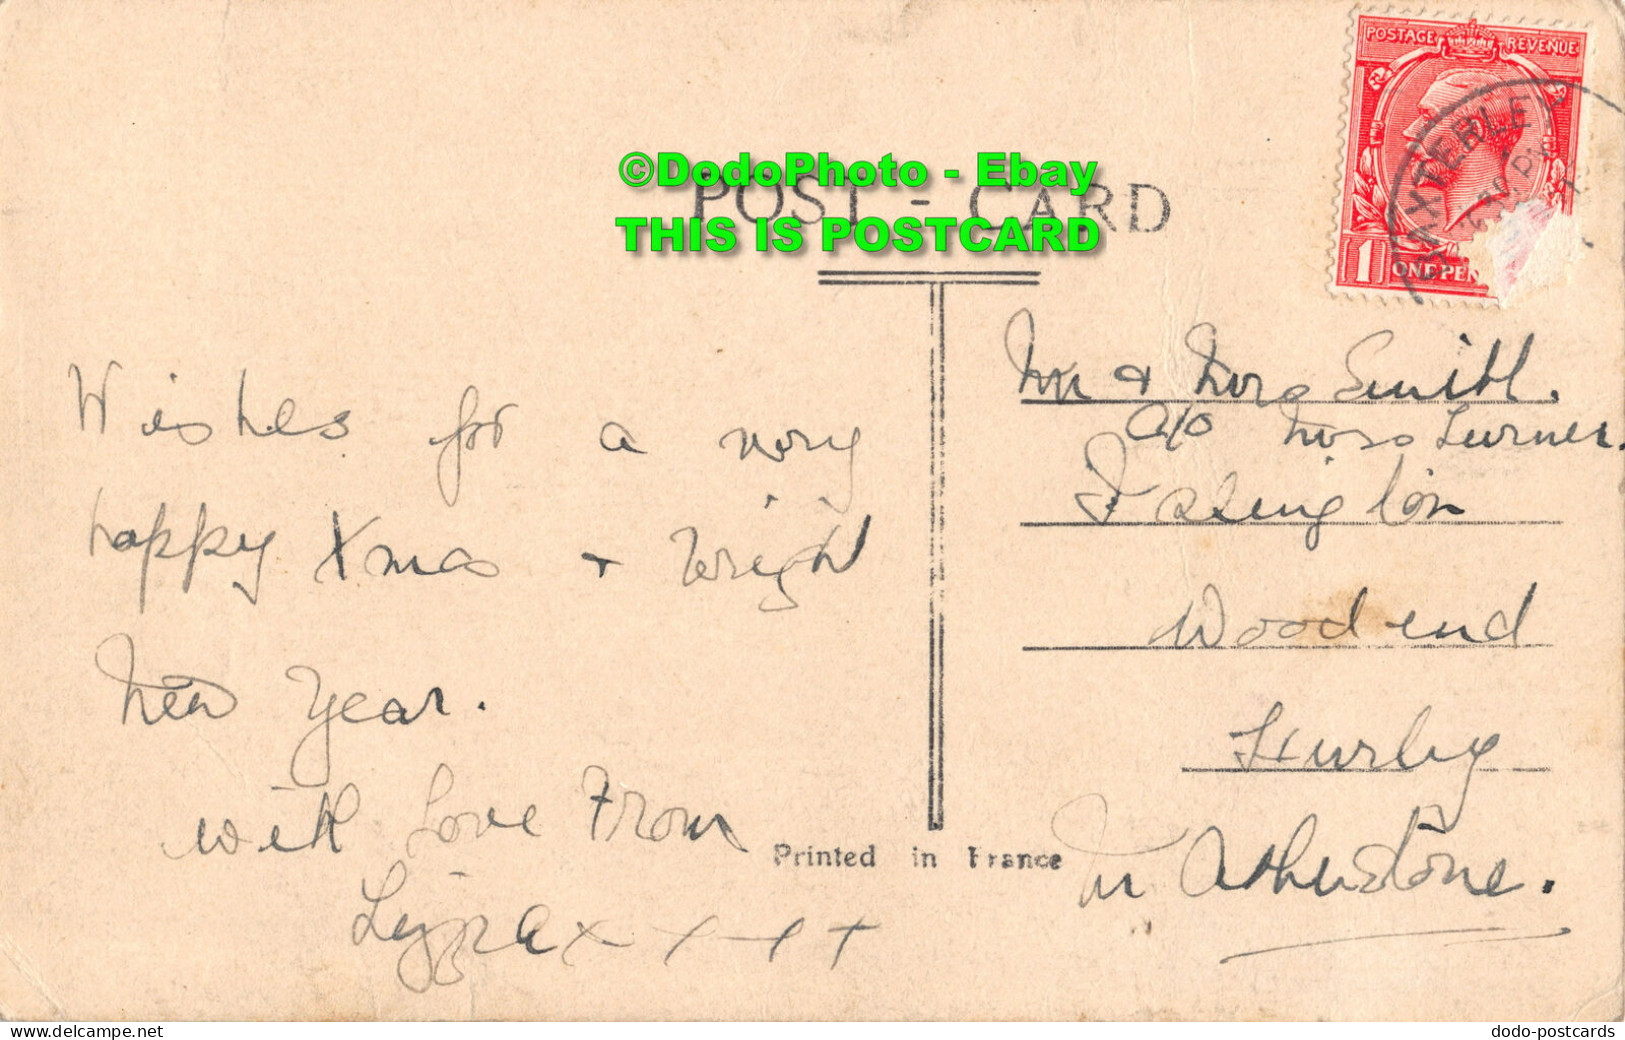 POSTAGE REVENUE
BAXTERLEY
1 ONE PEN
©DodoPhoto - Ebay
POST - CARD
THIS IS POSTCARD
Wishes for a very
happy Xmas + Bright
New Year.
with Love From
x x x x
Mr & Mrs Smith.
c/o Miss Turner.
Woodend
Hurley
Nr Atherstone.
Printed in France
Website: Dodo-postcards.delcampe.net
dodo-postcards